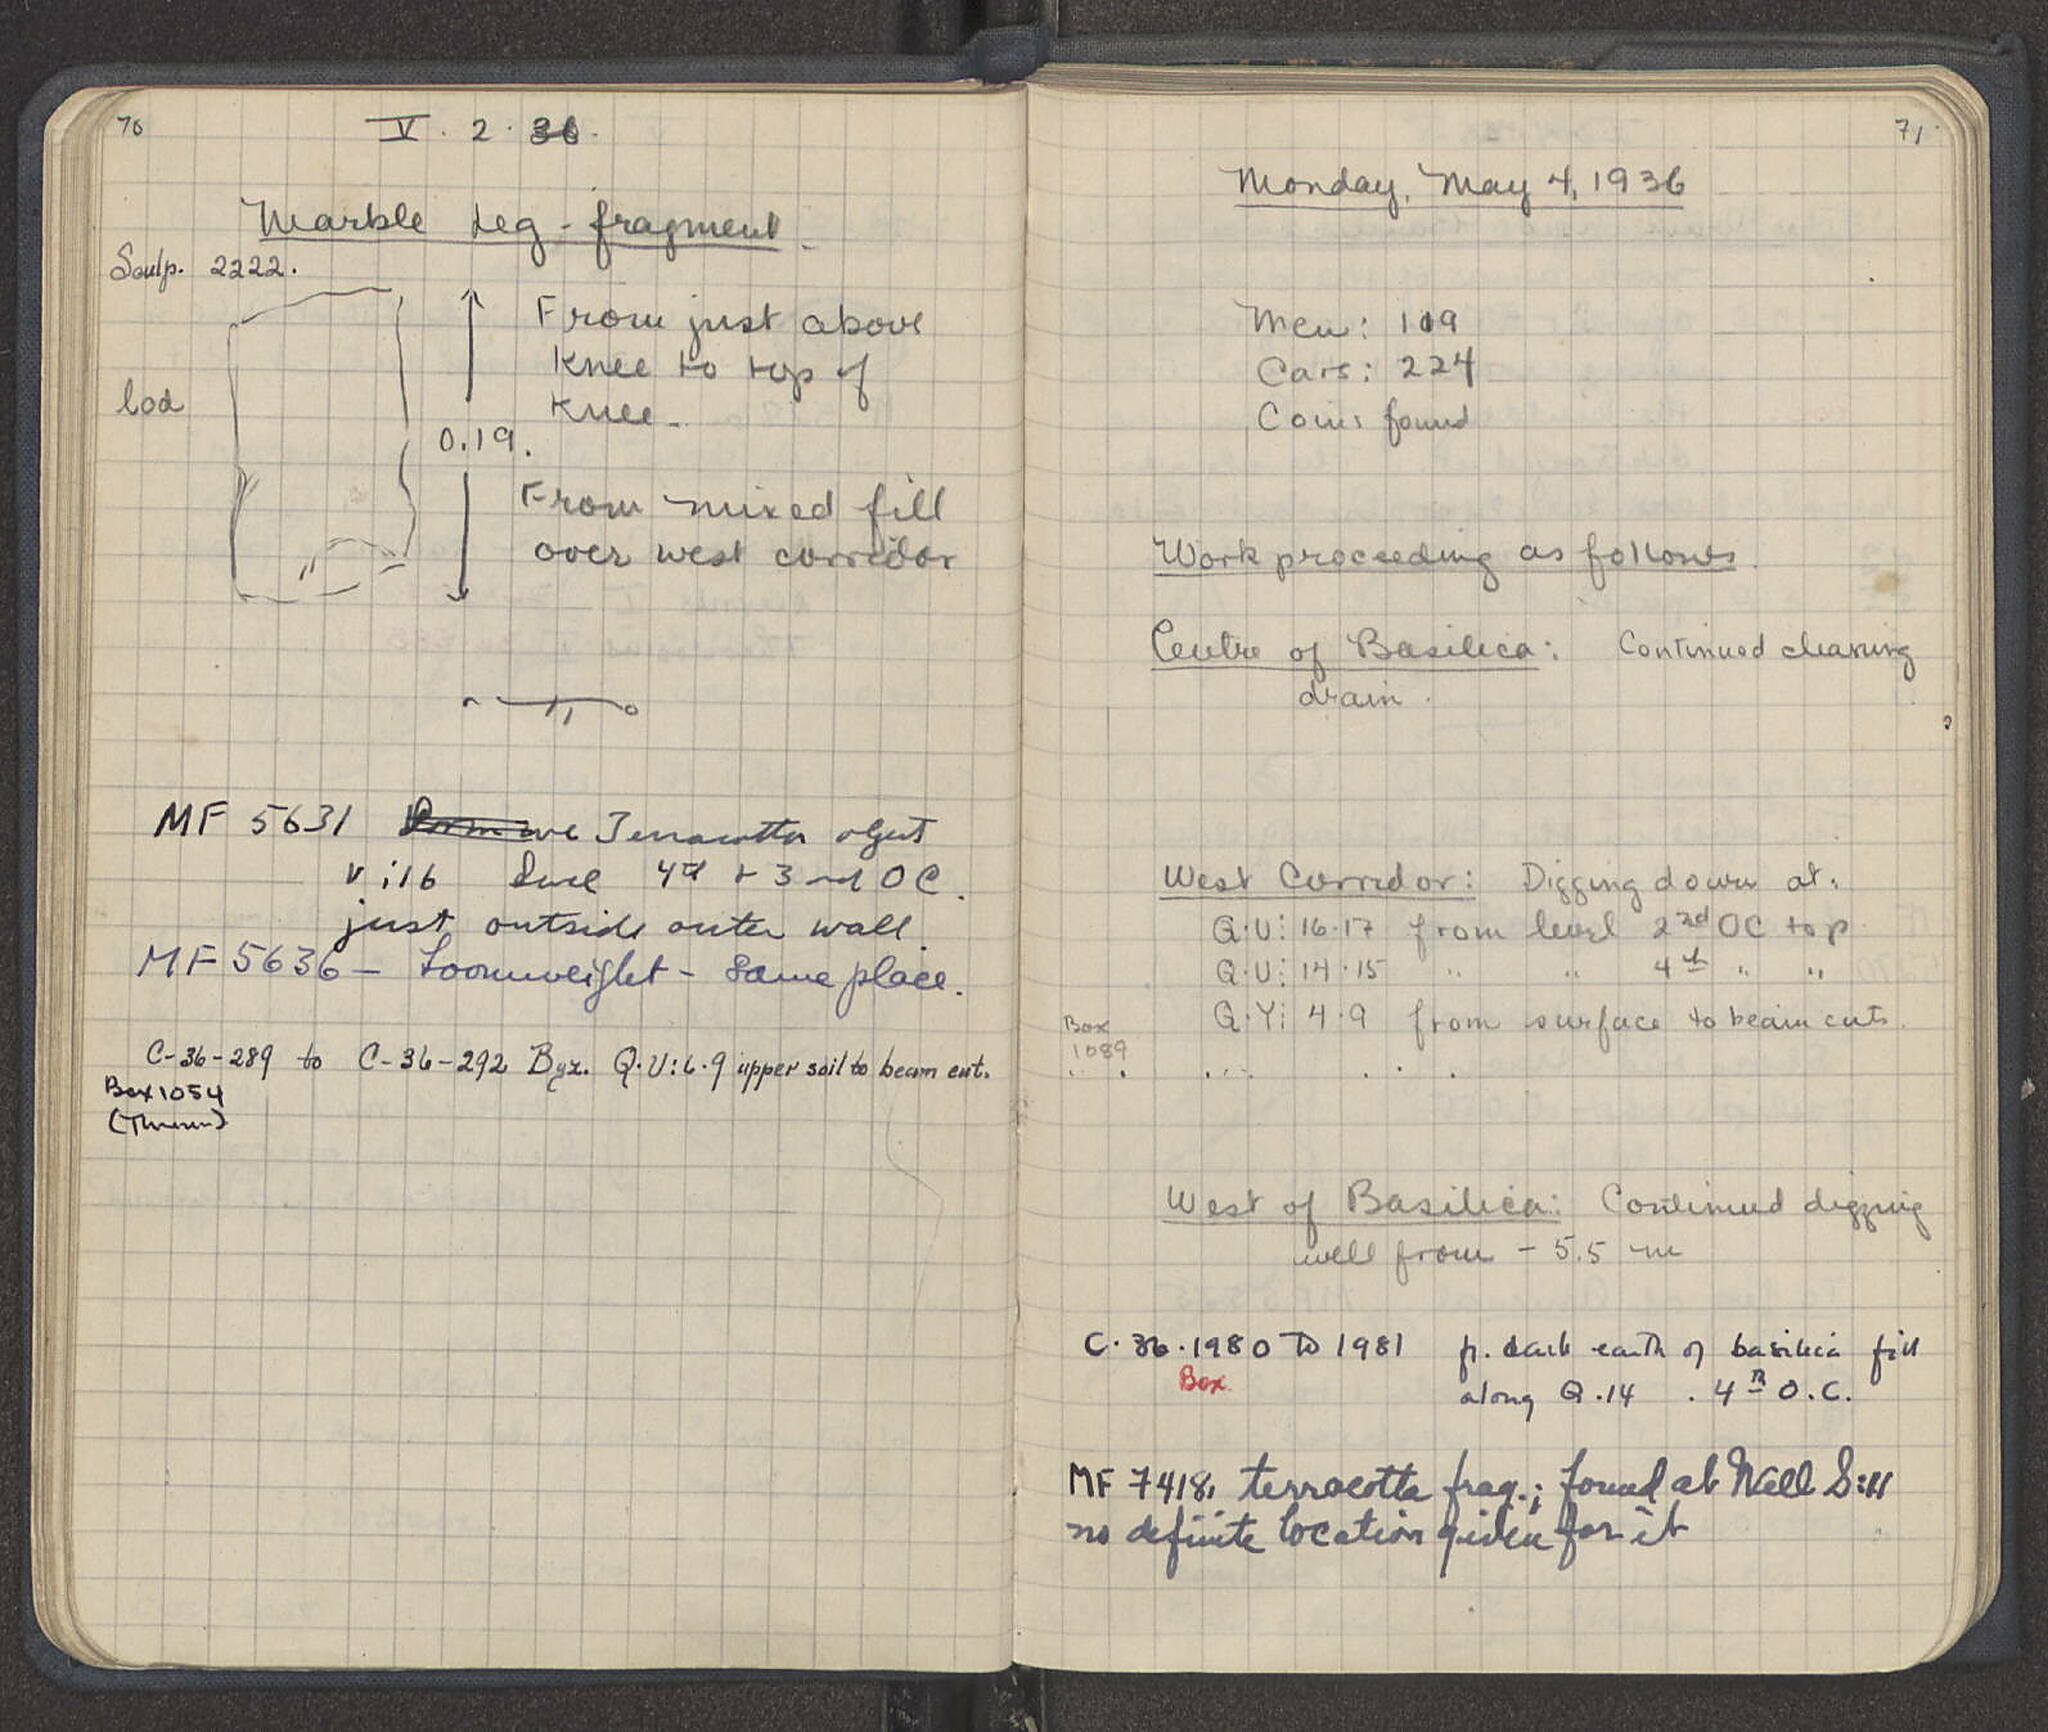 70
V. 2. 36.
Marble Leg-fragment.
Sculp. 2222.
From just above
knee to top of
knee.
lod
0.19.
From mixed fill
over west corridor
MF 5631 Terracotta object
V:16 4th + 3rd OC.
just outside outer wall.
MF 5636 - Loomweight - Same place.
C-36-289 to C-36-292 Byz. Q-U:6-9 upper soil to beam cut.
Box 1054
71
Monday, May 4, 1936
Men: 109
Cars: 224
Coins found
Work proceeding as follows.
Centre of Basilica: Continued cleaning
drain.
West Corridor: Digging down at:
Q-U: 16-17 from level 2nd OC top
Q-U: 14-15 " " 4th " "
Q-Y: 4-9 from surface to beam cuts.
Box
1089
West of Basilica: Continued digging
well from - 5.5 m
C-36-1980 to 1981 fr. dark earth of basilica fill
Box
along Q.14 . 4th O.C.
MF 7418, terracotta frag.; found at Well S:11
no definite location given for it